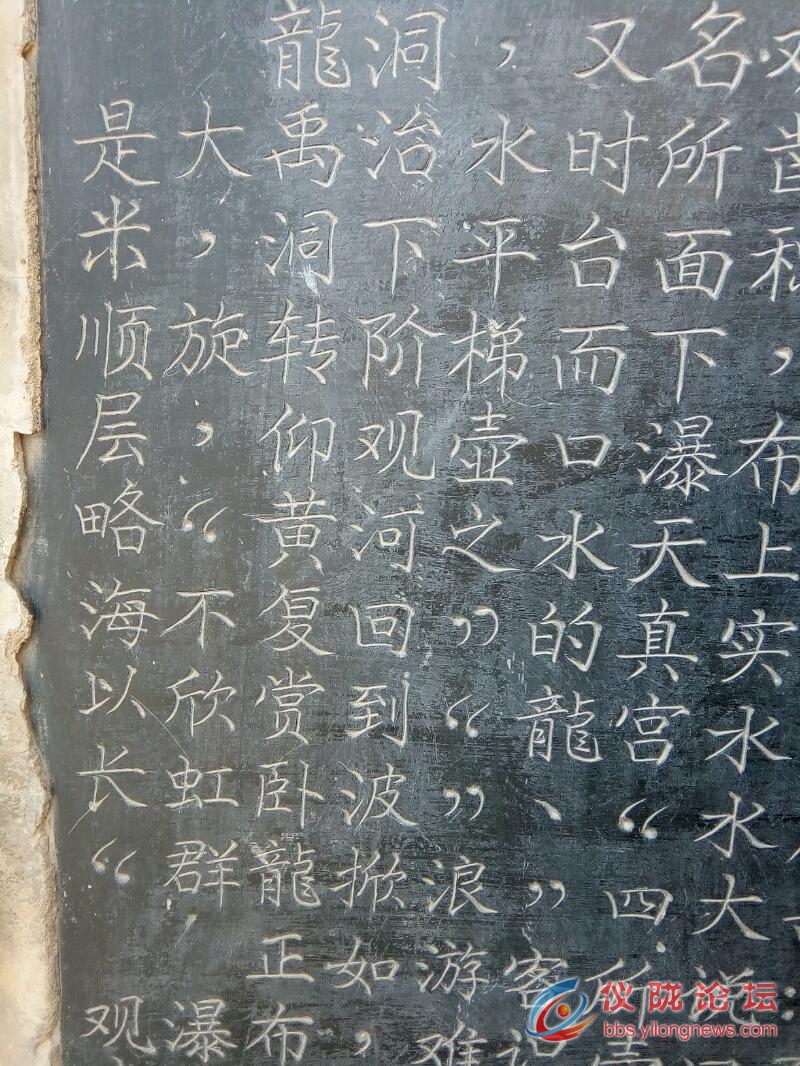 龍洞，又名
是大禹治水时所
米，洞下平台面积
顺旋转阶梯而下，
层，仰观壶口瀑布
略“黄河之水天上
海不复回”的真实
以欣赏到“龍宫水
长虹卧波”、“水
“群龍掀浪”四大
正如游客所说：
观瀑布，难
仪陇论坛
bbs.yilongnews.com